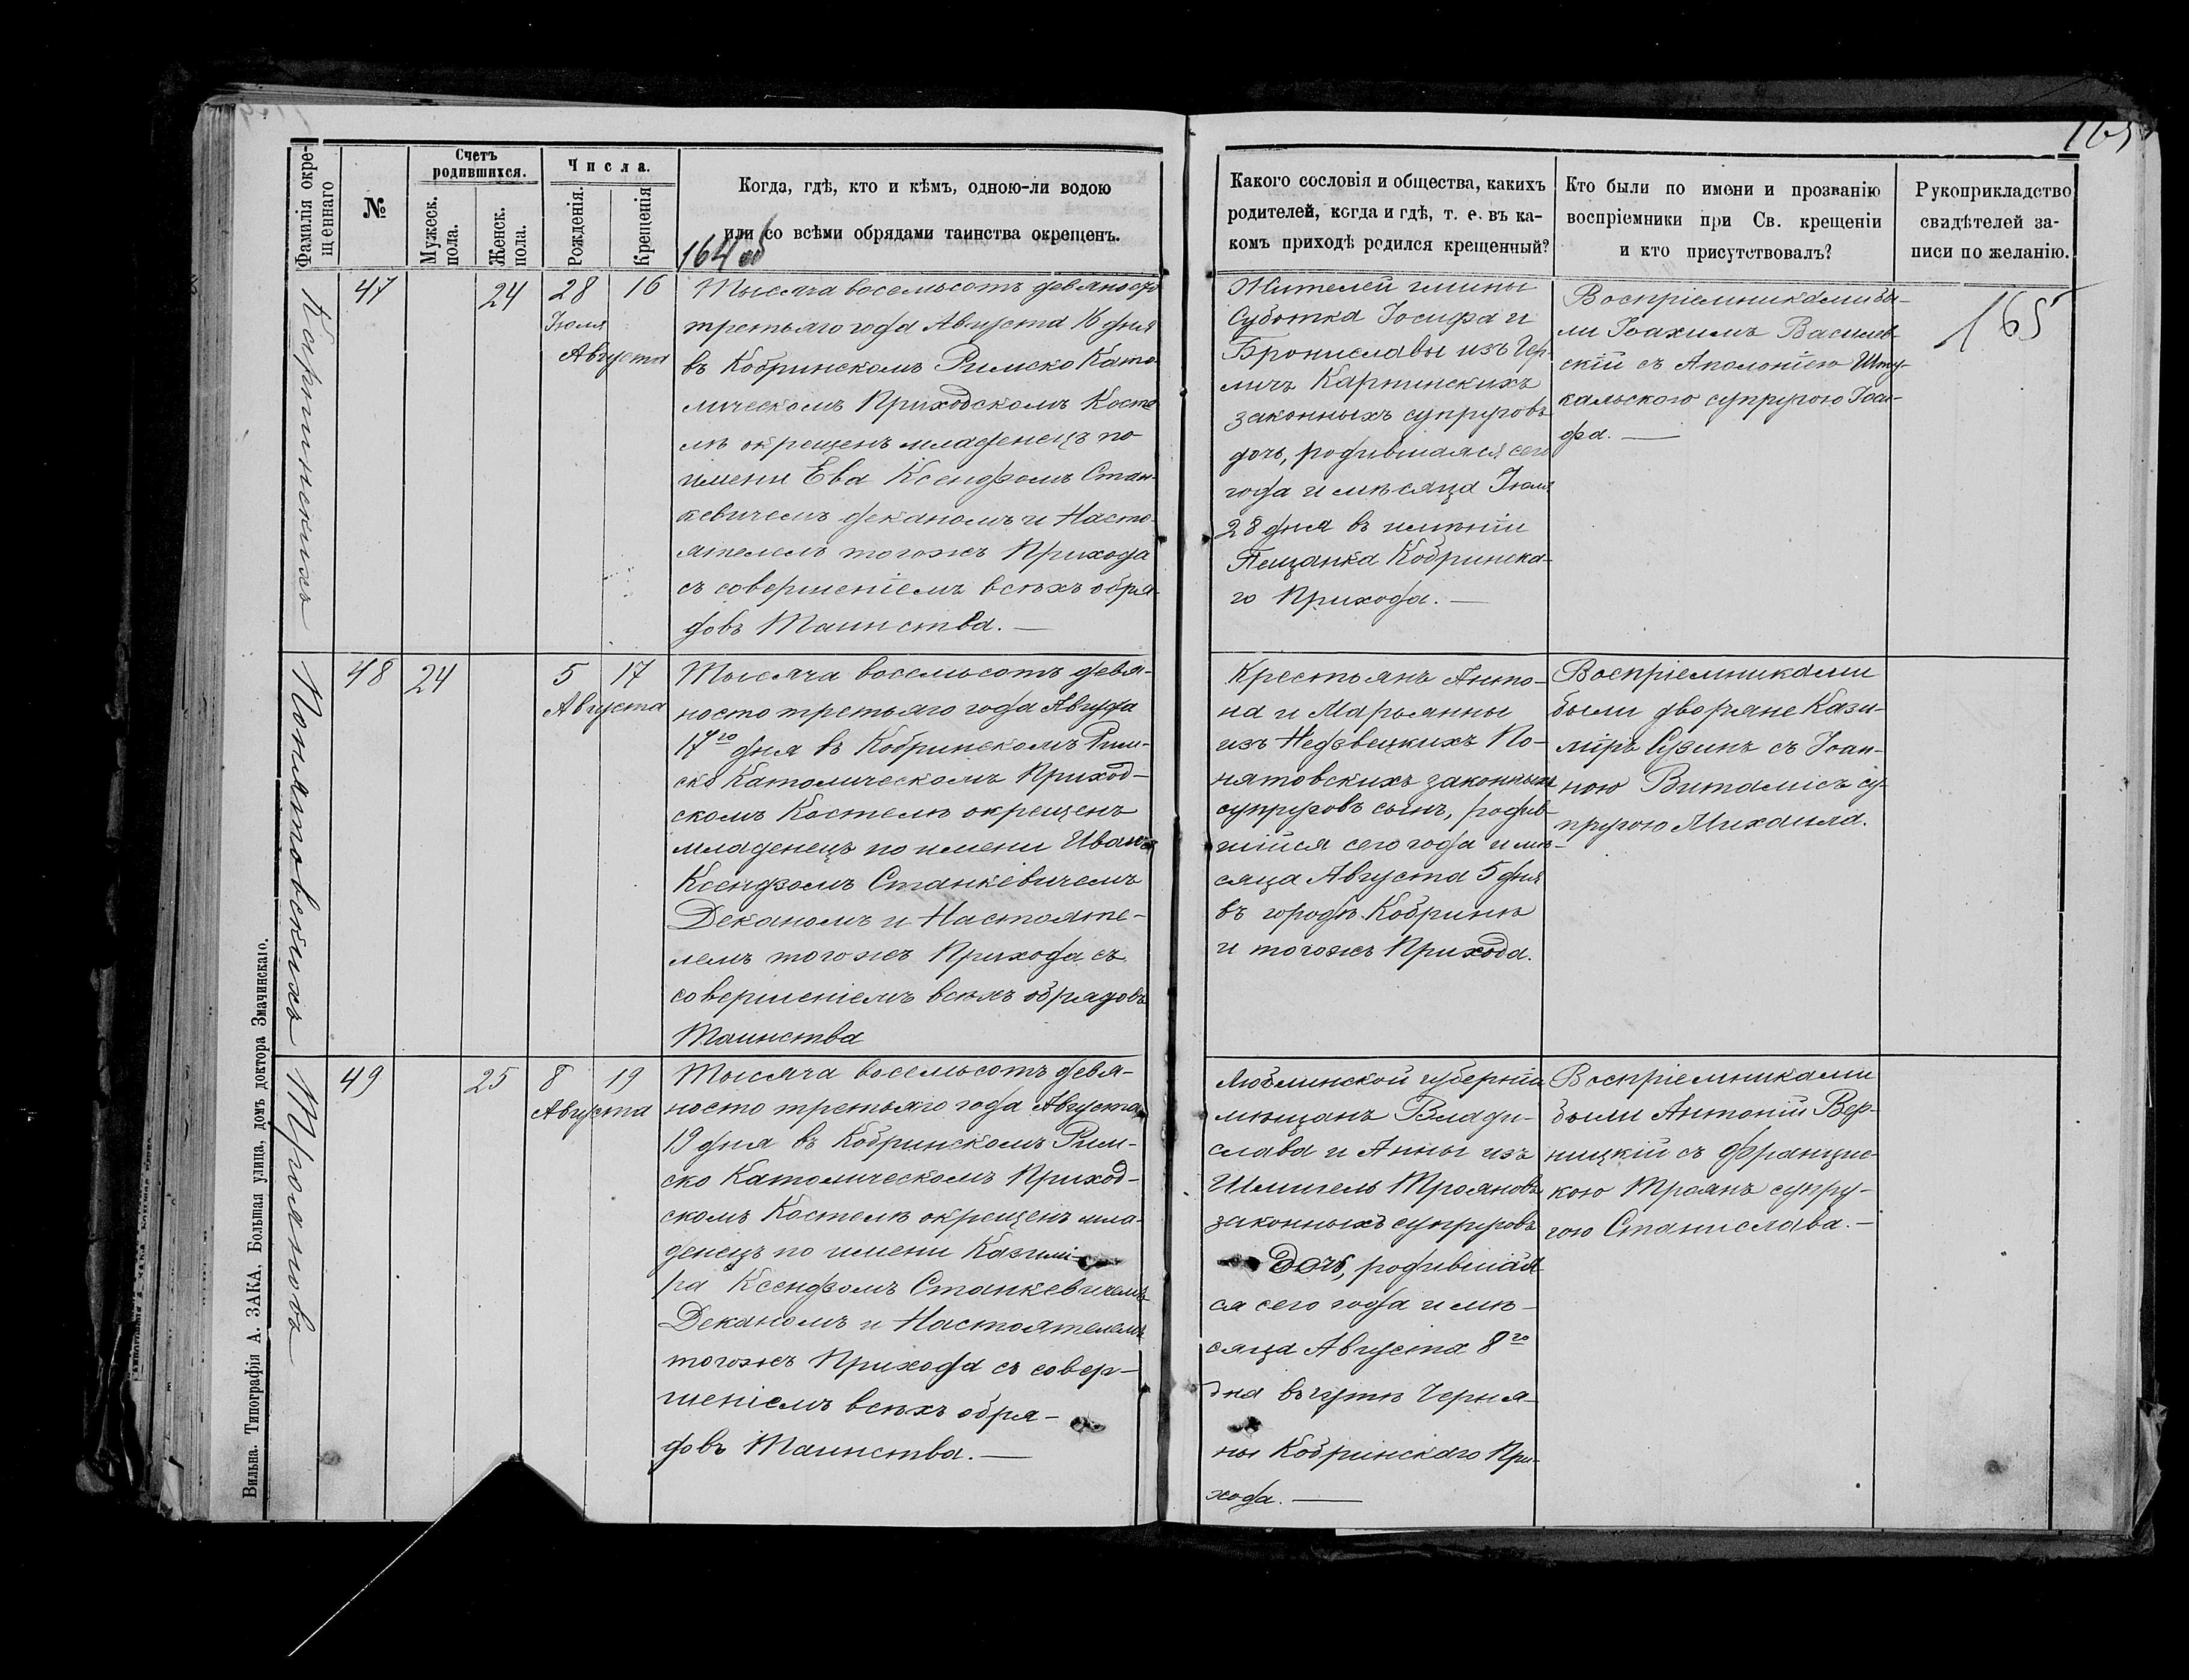 165
Фамилія окре-
щеннаго
№
Счетъ
родившихся.
Мужеск.
пола.
Женск.
пола.
Числа.
Рожденія.
Крещенія
Когда, гдѣ, кто и кѣмъ, одною-ли водою
или со всѣми обрядами таинства окрещенъ.
164 об
Какого сословія и общества, какихъ
родителей, когда и гдѣ, т. е. въ ка-
комъ приходѣ родился крещенный?
Кто были по имени и прозванію
воспріемники при Св. крещеніи
и кто присутствовалъ?
Рукоприкладство
свидѣтелей за-
писи по желанію.
Карпинскихъ
47
24
28
Іюля
16
Августа
Тысяча восемьсотъ девяносто
третьяго года Августа 16 дня
въ Кобринскомъ Римско Като-
лическомъ Приходскомъ Косте
лѣ окрещенъ младенецъ по
имени Ева Ксендзомъ Стан-
кевичемъ деканомъ и Насто-
ятелемъ тогожъ Прихода
съ совершеніемъ всѣхъ обря-
довъ Таинства. —
Жителей гмины
Суботка Іосифа и
Брониславы изъ Гер-
личъ Карпинскихъ
законныхъ супруговъ
дочь, родившаяся сего
года и мѣсяца Іюля
28 дня въ имѣніи
Пещанка Кобринска-
го Прихода. —
Воспріемниками бы-
ли Іоахимъ Василев-
скій съ Аполоніею Шту-
кальского супругою Іоси-
фа. —
165
Понятовскихъ
48
24
5
17
Августа
Тысяча восемьсотъ девя-
носто третьяго года Августа
17го дня въ Кобринскомъ Рим-
ско Католическомъ Приход-
скомъ Костелѣ окрещенъ
младенецъ по имени Иванъ
Ксендзомъ Станкевичемъ
Деканомъ и Настояте-
лемъ тогожъ Прихода съ
совершеніемъ всѣхъ обрядовъ
Таинства
Крестьянъ Анто-
на и Марьянны
изъ Недзвецкихъ По-
нятовскихъ законныхъ
супруговъ сынъ, родив-
шійся сего года и мѣ-
сяца Августа 5 дня
въ городѣ Кобринѣ
и тогожъ Прихода.
Воспріемниками
были дворяне Кази-
міръ Сузинъ съ Іоан-
ною Виталисъ су-
пругою Михаила.
Трояновъ
49
25
8
19
Августа
Тысяча восемьсотъ девя-
носто третьяго года Августа
19 дня въ Кобринскомъ Рим-
ско Католическомъ Приход-
скомъ Костелѣ окрещенъ мла-
денецъ по имени Казимі-
ра Ксендзомъ Станкевичемъ
Деканомъ и Настоятелемъ
тогожъ Прихода съ совер-
шеніемъ всѣхъ обря-
довъ Таинства. —
Люблинской губерніи
мѣщанъ Влади-
слава и Анны изъ
Шмигель Трояновъ
законныхъ супруговъ
Дочь, родившая
ся сего года и мѣ-
сяца Августа 8го
дня въ гутѣ Черня-
ны Кобринскаго При-
хода. —
Воспріемниками
были Антоній Вер-
ницкій съ Францис-
кою Троянъ супру-
гою Станислава. —
Вильна. Типографія А. ЗАКА, Большая улица, домъ доктора Змачинскаго.